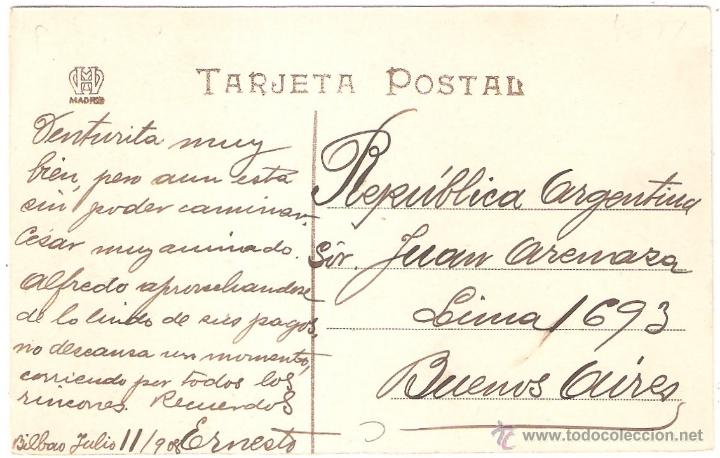 MADRID
TARJETA POSTAL
Venturita muy
bien, pero aun está
sin poder caminar.
César muy animado.
Alfredo aprovechandose
de lo lindo de sus pagos,
no descansa un momento,
corriendo por todos los
rincones. Recuerdos
Bilbao Julio 11/908 Ernesto
República Argentina
Sór. Juan Aremaza
Lima 1693
Buenos Aires
© www.todocoleccion.net